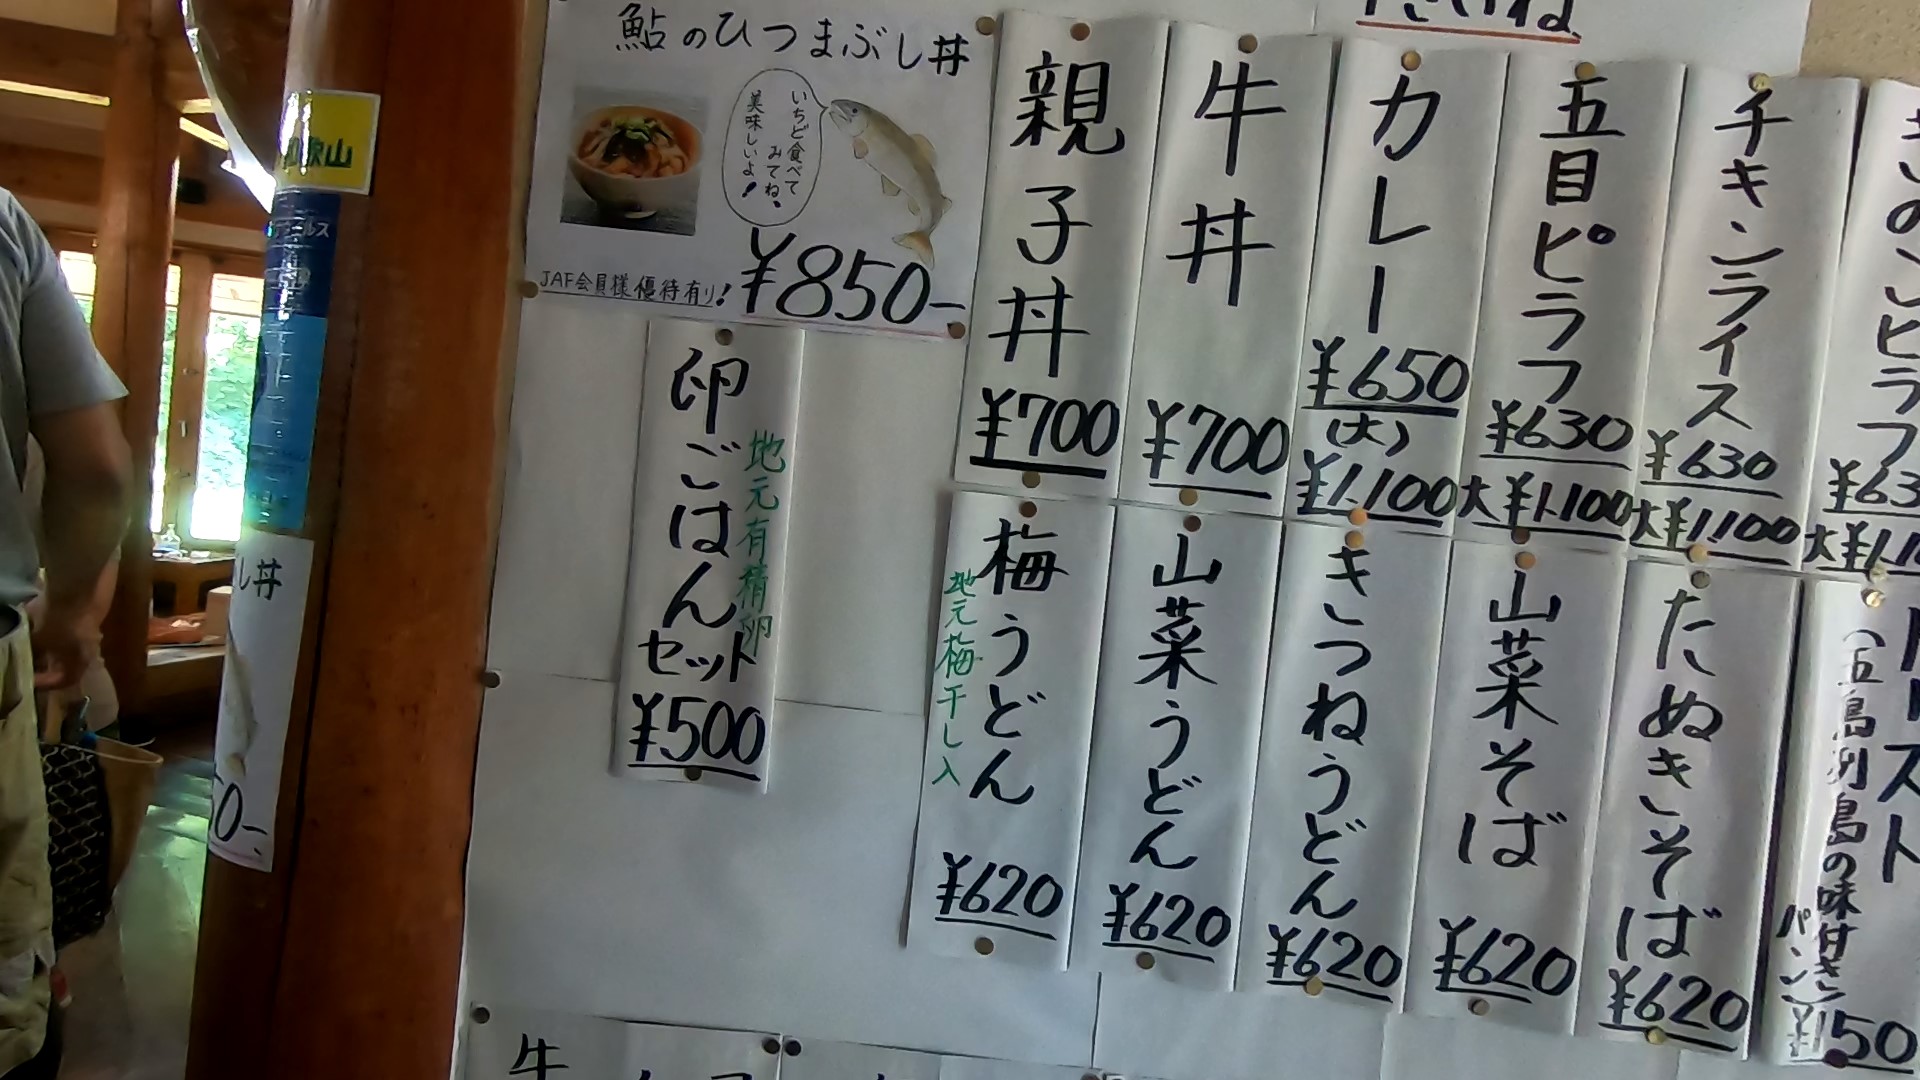 鮎のひつまぶし丼
いちど食べて
みてね、
美味しいよ!
JAF会員様優待有り!
¥850-
親子丼
¥700
牛丼
¥700
カレー
¥650
(大)
¥1,100
五目ピラフ
¥630
大¥1,100
チキンライス
¥630
大¥1,100
卵ごはん
セット
地元有精卵
¥500
梅うどん
地元梅干し入
¥620
山菜うどん
¥620
きつねうどん
¥620
山菜そば
¥620
たぬきそば
¥620
トースト
(五島列島の味付き
パン)
¥150
し丼
0-
牛